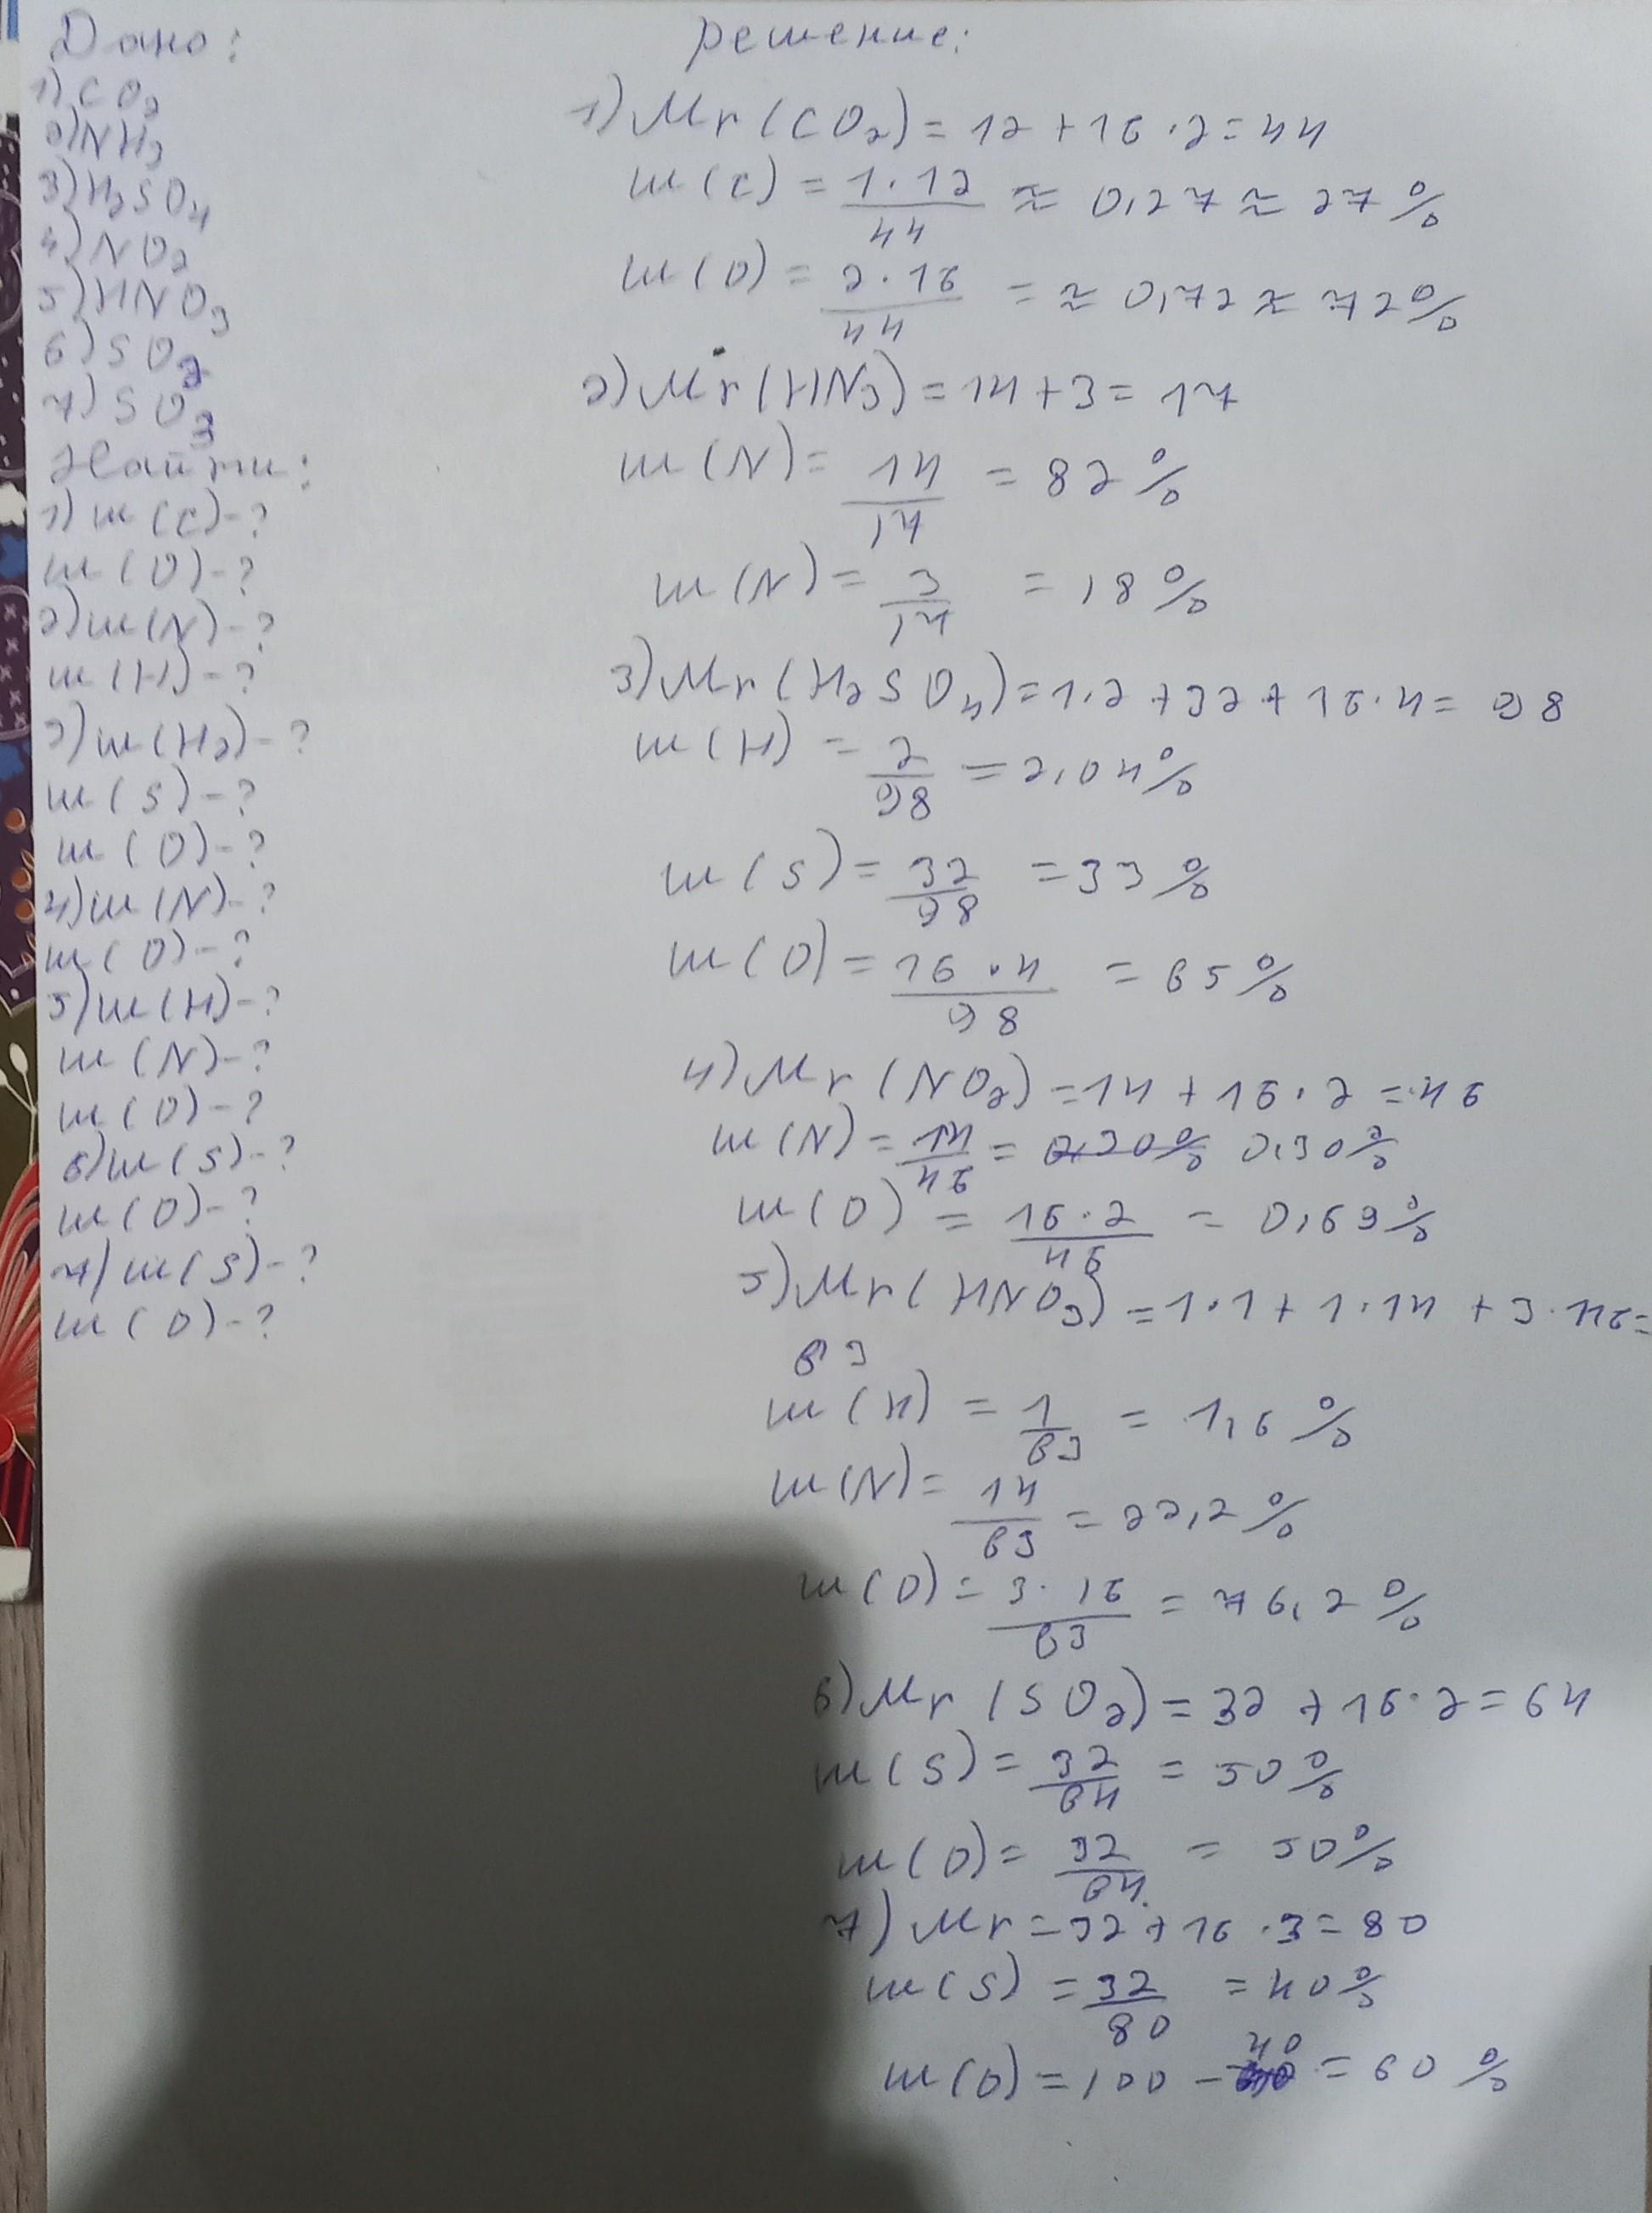 Дано:
1) CO2
2) NH3
3) H2SO4
4) NO2
5) HNO3
6) SO2
7) SO3
Найти:
1) ш(C)-?
ш(O)-?
2) ш(N)-?
ш(H)-?
3) ш(H2)-?
ш(S)-?
ш(O)-?
4) ш(N)-?
ш(O)-?
5) ш(H)-?
ш(N)-?
ш(O)-?
6) ш(S)-?
ш(O)-?
7) ш(S)-?
ш(O)-?
решение:
1) Mr(CO2) = 12 + 16 · 2 = 44
ш(C) = 1·12/44 ≈ 0,27 ≈ 27%
ш(O) = 2·16/44 = ≈ 0,72 ≈ 72%
2) Mr(HN3) = 14 + 3 = 17
ш(N) = 14/17 = 82%
ш(N) = 3/17 = 18%
3) Mr(H2SO4) = 1·2 + 32 + 16·4 = 98
ш(H) = 2/98 = 2,04%
ш(S) = 32/98 = 33%
ш(O) = 16·4/98 = 65%
4) Mr(NO2) = 14 + 16 · 2 = 46
ш(N) = 14/46 = 0,30%
ш(O) = 16·2/46 = 0,69%
5) Mr(HNO3) = 1·1 + 1·14 + 3·116 =
63
ш(H) = 1/63 = 1,6%
ш(N) = 14/63 = 22,2%
ш(O) = 3·16/63 = 76,2%
6) Mr(SO2) = 32 + 16·2 = 64
ш(S) = 32/64 = 50%
ш(O) = 32/64 = 50%
7) Mr = 32 + 16 · 3 = 80
ш(S) = 32/80 = 40%
ш(O) = 100 - 40 = 60%